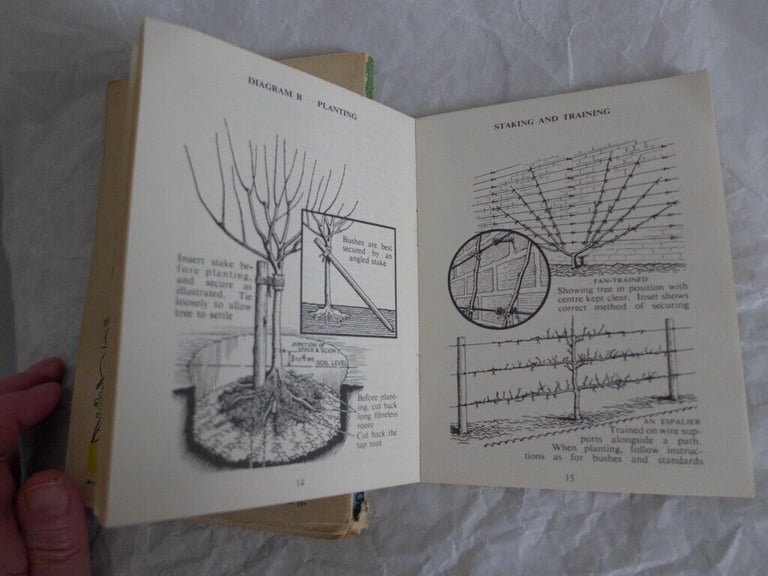 DIAGRAM B PLANTING
Insert stake be-
fore planting,
and secure as
illustrated. Tie
loosely to allow
tree to settle
Bushes are best
secured by an
angled stake
JUNCTION OF
STOCK & SCION
SOIL LEVEL
Before plant-
ing, cut back
long fibreless
roots
Cut back the
tap root
14
STAKING AND TRAINING
FAN-TRAINED
Showing tree in position with
centre kept clear. Inset shows
correct method of securing
AN ESPALIER
Trained on wire sup-
ports alongside a path.
When planting, follow instruc-
tions as for bushes and standards
15